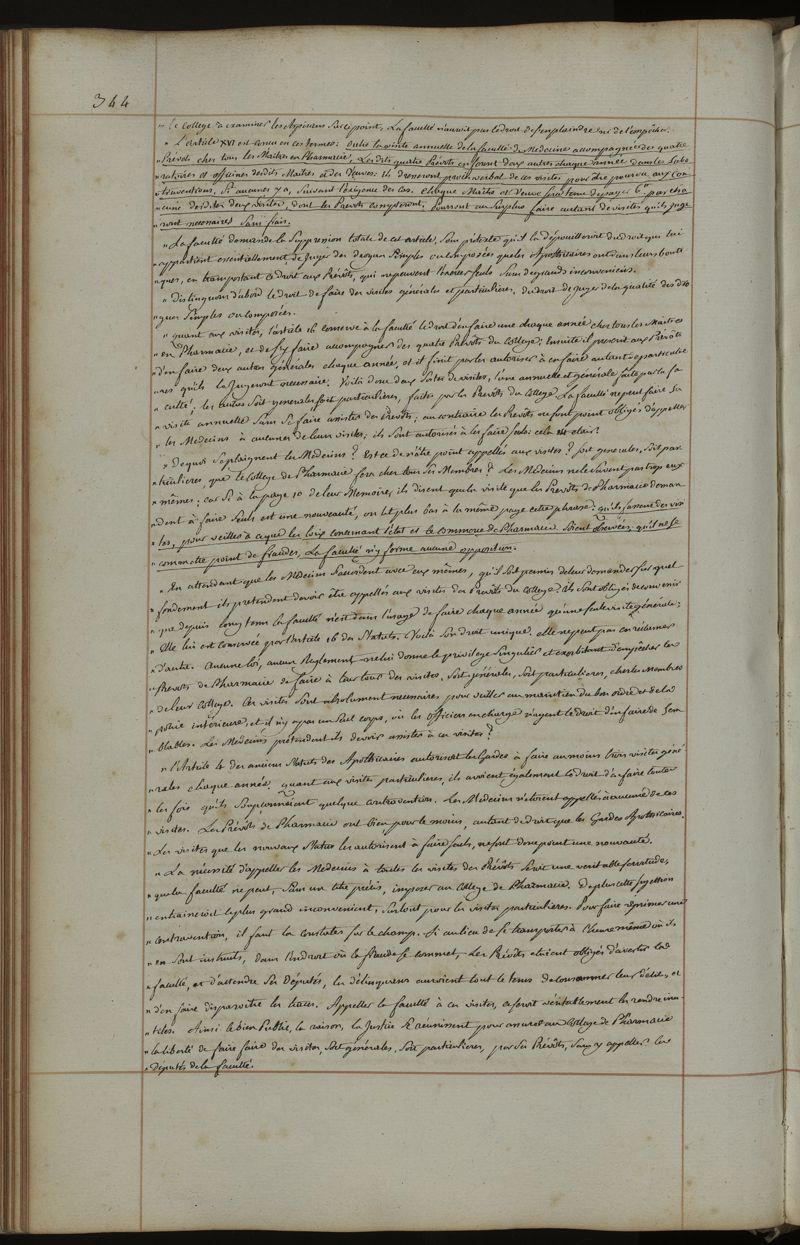 344
" Le College à examiner les Aspirans sur ce point, La faculté n'auroit pas le droit de s'en plaindre ni de l'empêcher.
" L'article XVI est conçu en ces termes: outre la visite annuelle de la faculté de Medecine accompagnée des quatre
" Prévots chez tous les Maitres en Pharmacie, Les dits quatre Prévots en feront deux autres chaque année dans les Labo
" ratoires et officines desdits Maitres et des Veuves: ils dresseront procès verbal de ces visites pour être pourvu aux con
" traventions, si aucunes y a, suivant l'exigence des cas. chaque Maitre et Veuve sera tenu de payer 6ᵗᵗ pour cha
" cune desdites deux visites, dont les Prévots compteront. Pourront au surplus faire autant de visites qu'ils juge
" ront necessaires sans frais.
" La faculté demande la suppression totale de cet article, sous prétexte qu'il la dépouilleroit du droit qui lui
" appartient essentiellement de juger des drogues simples ou composées que les Apothicaires ont dans leurs bouti
" ques, en transportant ce droit aux Prévots, qui ne peuvent l'exercer seuls sans de grands inconveniens.
" Distinguons d'abord le droit de faire des visites générales et particulieres, du droit de juger de la qualité des dro
" gues simples ou composées.
" quant aux visites, l'article 16 conserve à la faculté le droit d'en faire une chaque année chez tous les Maitres
" en Pharmacie, et de s'y faire accompagner des quatre Prévots du College; Ensuite il prescrit aux Prévots
" d'en faire deux autres générales chaque année, et il finit par les autoriser à en faire autant de particulie
" res qu'ils le jugeront necessaire. Voilà donc deux sortes de visites, l'une annuelle et générale faite par la fa
" culté; les autres soit generales soit particulieres, faites par les Prévots du College. La faculté ne peut faire sa
" visite annuelle sans se faire assister des Prévots; au contraire les Prévots ne sont point obligés d'appeller
" les Medecins à aucunes de leurs visites; ils sont autorisés à les faire seuls: cela est clair.
" De quoi se plaignent les Medecins? Est-ce de n'être point appellés aux visites? soit generales, soit par
" ticulieres, que le College de Pharmacie fera chez tous ses Membres? Les Medecins ne le savent pas trop eux
" mêmes; car si à la page 10 de leur Memoire, ils disent que la visite que les Prévots de Pharmacie deman
" dent à faire seuls est une nouveauté, on lit plus bas à la même page cette phrase: qu'ils fassent des visi
" tes, pour veiller à ce que les loix concernant l'état et le commerce de Pharmacie soient observées, qu'il ne se
" commette point de fraudes, La faculté n'y forme aucune opposition.
" En attendant que les Medecins s'accordent avec eux mêmes, qu'il soit permis de leur demander sur quel
" fondement ils pretendent devoir être appellés aux visites des Prévots du College? Ils sont obligés de convenir
" que depuis long tems la faculté n'est dans l'usage de faire chaque année qu'une seule visite générale;
" Elle lui est conservée par l'article 16 des Statuts. Voilà son droit unique, elle ne peut pas en réclamer
" d'autre. Aucune loi, aucun Reglement ne lui donne le privilege singulier et exorbitant d'empêcher les
" Prévots de Pharmacie de faire à leur tour des visites, soit générales, soit particulieres, chez les Membres
" de leur College. Ces visites sont absolument necessaires pour veiller au maintien du bon ordre et de la
" police intérieure, et il n'y a pas un seul corps, où les officiers en charge n'ayent le droit d'en faire de sem
" blables. Les Medecins prétendent-ils devoir assister à ces visites?
" l'Article 4 des anciens Statuts des Apothicaires autorisoit les Gardes à faire au moins trois visites géné
" rales chaque année, quant aux visites particulieres, ils avoient également le droit d'en faire toutes
" les fois qu'ils soupçonnoient quelque contravention. Les Medecins n'etoient appellés à aucune de ces
" visites. Les Prévots de Pharmacie ont bien pour le moins, autant de droit que les Gardes Apothicaires.
" Les visites que les nouveaux Statuts les autorisent à faire seuls, ne sont donc point une nouveauté.
" La nécessité d'appeller les Medecins à toutes les visites des Prévots seroit une veritable servitude,
" que la faculté ne peut, sans un titre précis, imposer au College de Pharmacie. De plus cette sujettion
" entraineroit le plus grand inconvenient, surtout pour les visites particulieres. Pour faire réprimer une
" contravention, il faut la constater sur le champ. Si au lieu de se transporter à l'heure même où ils
" en sont instruits, dans l'endroit où la fraude se commet, Les Prévots etoient obligés d'avertir la
" faculté, et d'attendre ses Députés, les délinquans auroient tout le tems de consommer leur délit, et
" d'en faire disparoitre les traces. Appeller la faculté à ces visites, ce seroit véritablement les rendre inu
" tiles. Ainsi le bien Public, la raison, la justice se reunissent pour assurer au College de Pharmacie
" la liberté de faire faire des visites, soit générales, soit particulieres, par ses Prévots, sans y appeller les
" députés de la faculté.